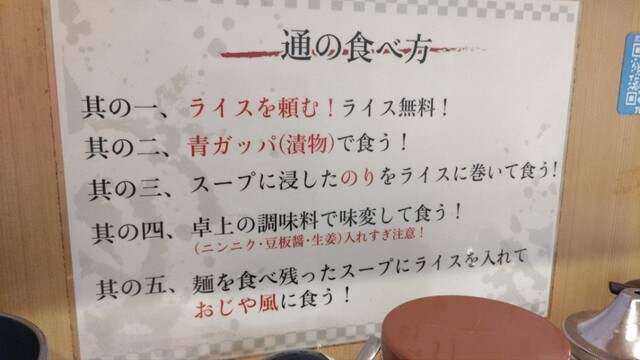 通の食べ方
其の一、ライスを頼む！ライス無料！
其の二、青ガッパ(漬物)で食う！
其の三、スープに浸したのりをライスに巻いて食う!
其の四、卓上の調味料で味変して食う！
(ニンニク・豆板醤・生姜)入れすぎ注意！
其の五、麺を食べ残ったスープにライスを入れて
おじや風に食う！